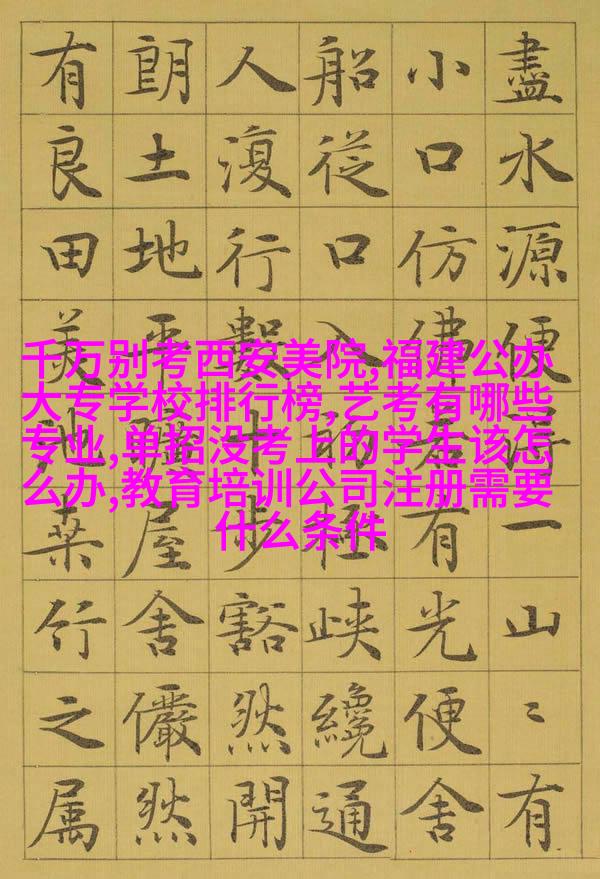 盡水源便得一山〻有
小口仿佛若有光便舍
船從口入初極峽纔通
人復行數十步豁然開
朗土地平曠屋舍儼然
有良田美池桑竹之属
千万别考西安美院,福建公办
大专学校排行榜,艺考有哪些
专业,单招没考上的学生该怎
么办,教育培训公司注册需要
什么条件